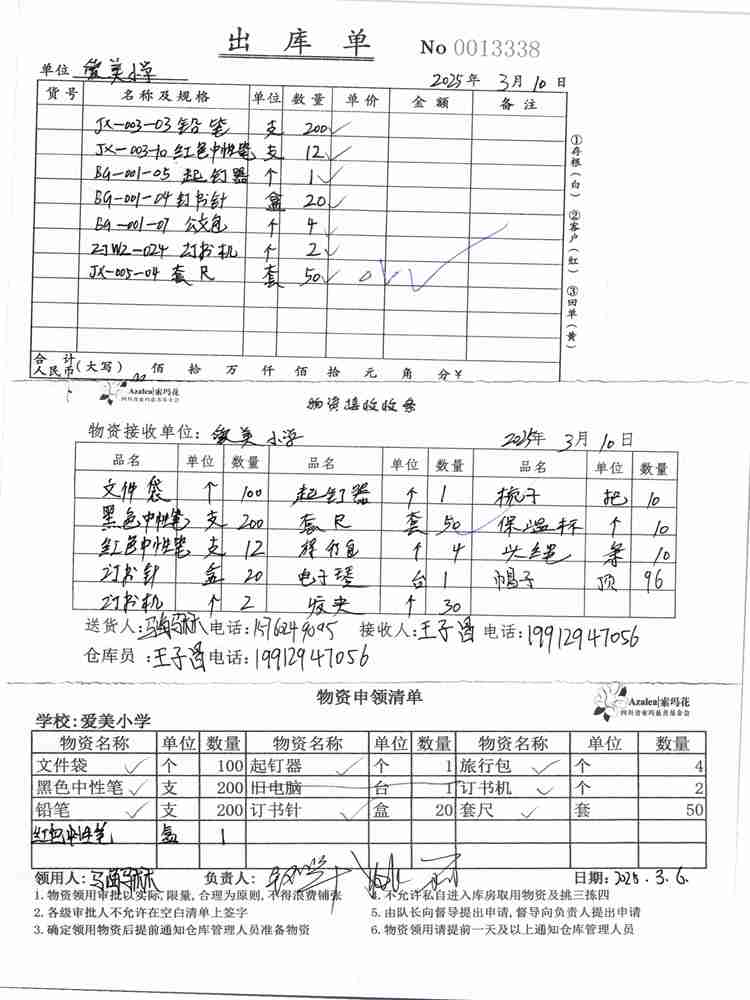 出库单 No 0013338
单位 爱美小学 2025年 3月 10日
货号 名称及规格 单位 数量 单价 金额 备注
JX-003-03 铅笔 支 200
JX-003-10 红色中性笔 支 12
BG-001-05 起钉器 个 1
BG-001-04 订书针 盒 20
BG-001-07 公文包 个 4
ZJWZ-024 订书机 个 2
JX-005-04 套尺 套 50
①存根(白) ②客户(红) ③回单(黄)
合计人民币(大写) 佰 拾 万 仟 佰 拾 元 角 分 ¥
Azalea|索玛花
四川省索玛慈善基金会
物资接收收条
物资接收单位: 爱美小学 2025年 3月 10日
品名 单位 数量 品名 单位 数量 品名 单位 数量
文件袋 个 100 起钉器 个 1 梳子 把 10
黑色中性笔 支 200 套尺 套 50 保温杯 个 10
红色中性笔 支 12 旅行包 个 4 头绳 条 10
订书针 盒 20 电子琴 台 1 帽子 顶 96
订书机 个 2 发夹 个 30
送货人: 电话: 接收人:王子昌 电话:19912947056
仓库员:王子昌 电话:19912947056
物资申领清单
Azalea|索玛花
四川省索玛慈善基金会
学校:爱美小学
物资名称 单位 数量 物资名称 单位 数量 物资名称 单位 数量
文件袋 个 100 起钉器 个 1 旅行包 个 4
黑色中性笔 支 200 旧电脑 台 1 订书机 个 2
铅笔 支 200 订书针 盒 20 套尺 套 50
红色中性笔 盒 1
领用人: 负责人: 日期: 2025.3.6.
1.物资领用审批以实际,限量,合理为原则,不得浪费铺张 4.不允许私自进入库房取用物资及挑三拣四
2.各级审批人不允许在空白清单上签字 5.由队长向督导提出申请,督导向负责人提出申请
3.确定领用物资后提前通知仓库管理人员准备物资 6.物资领用请提前一天及以上通知仓库管理人员